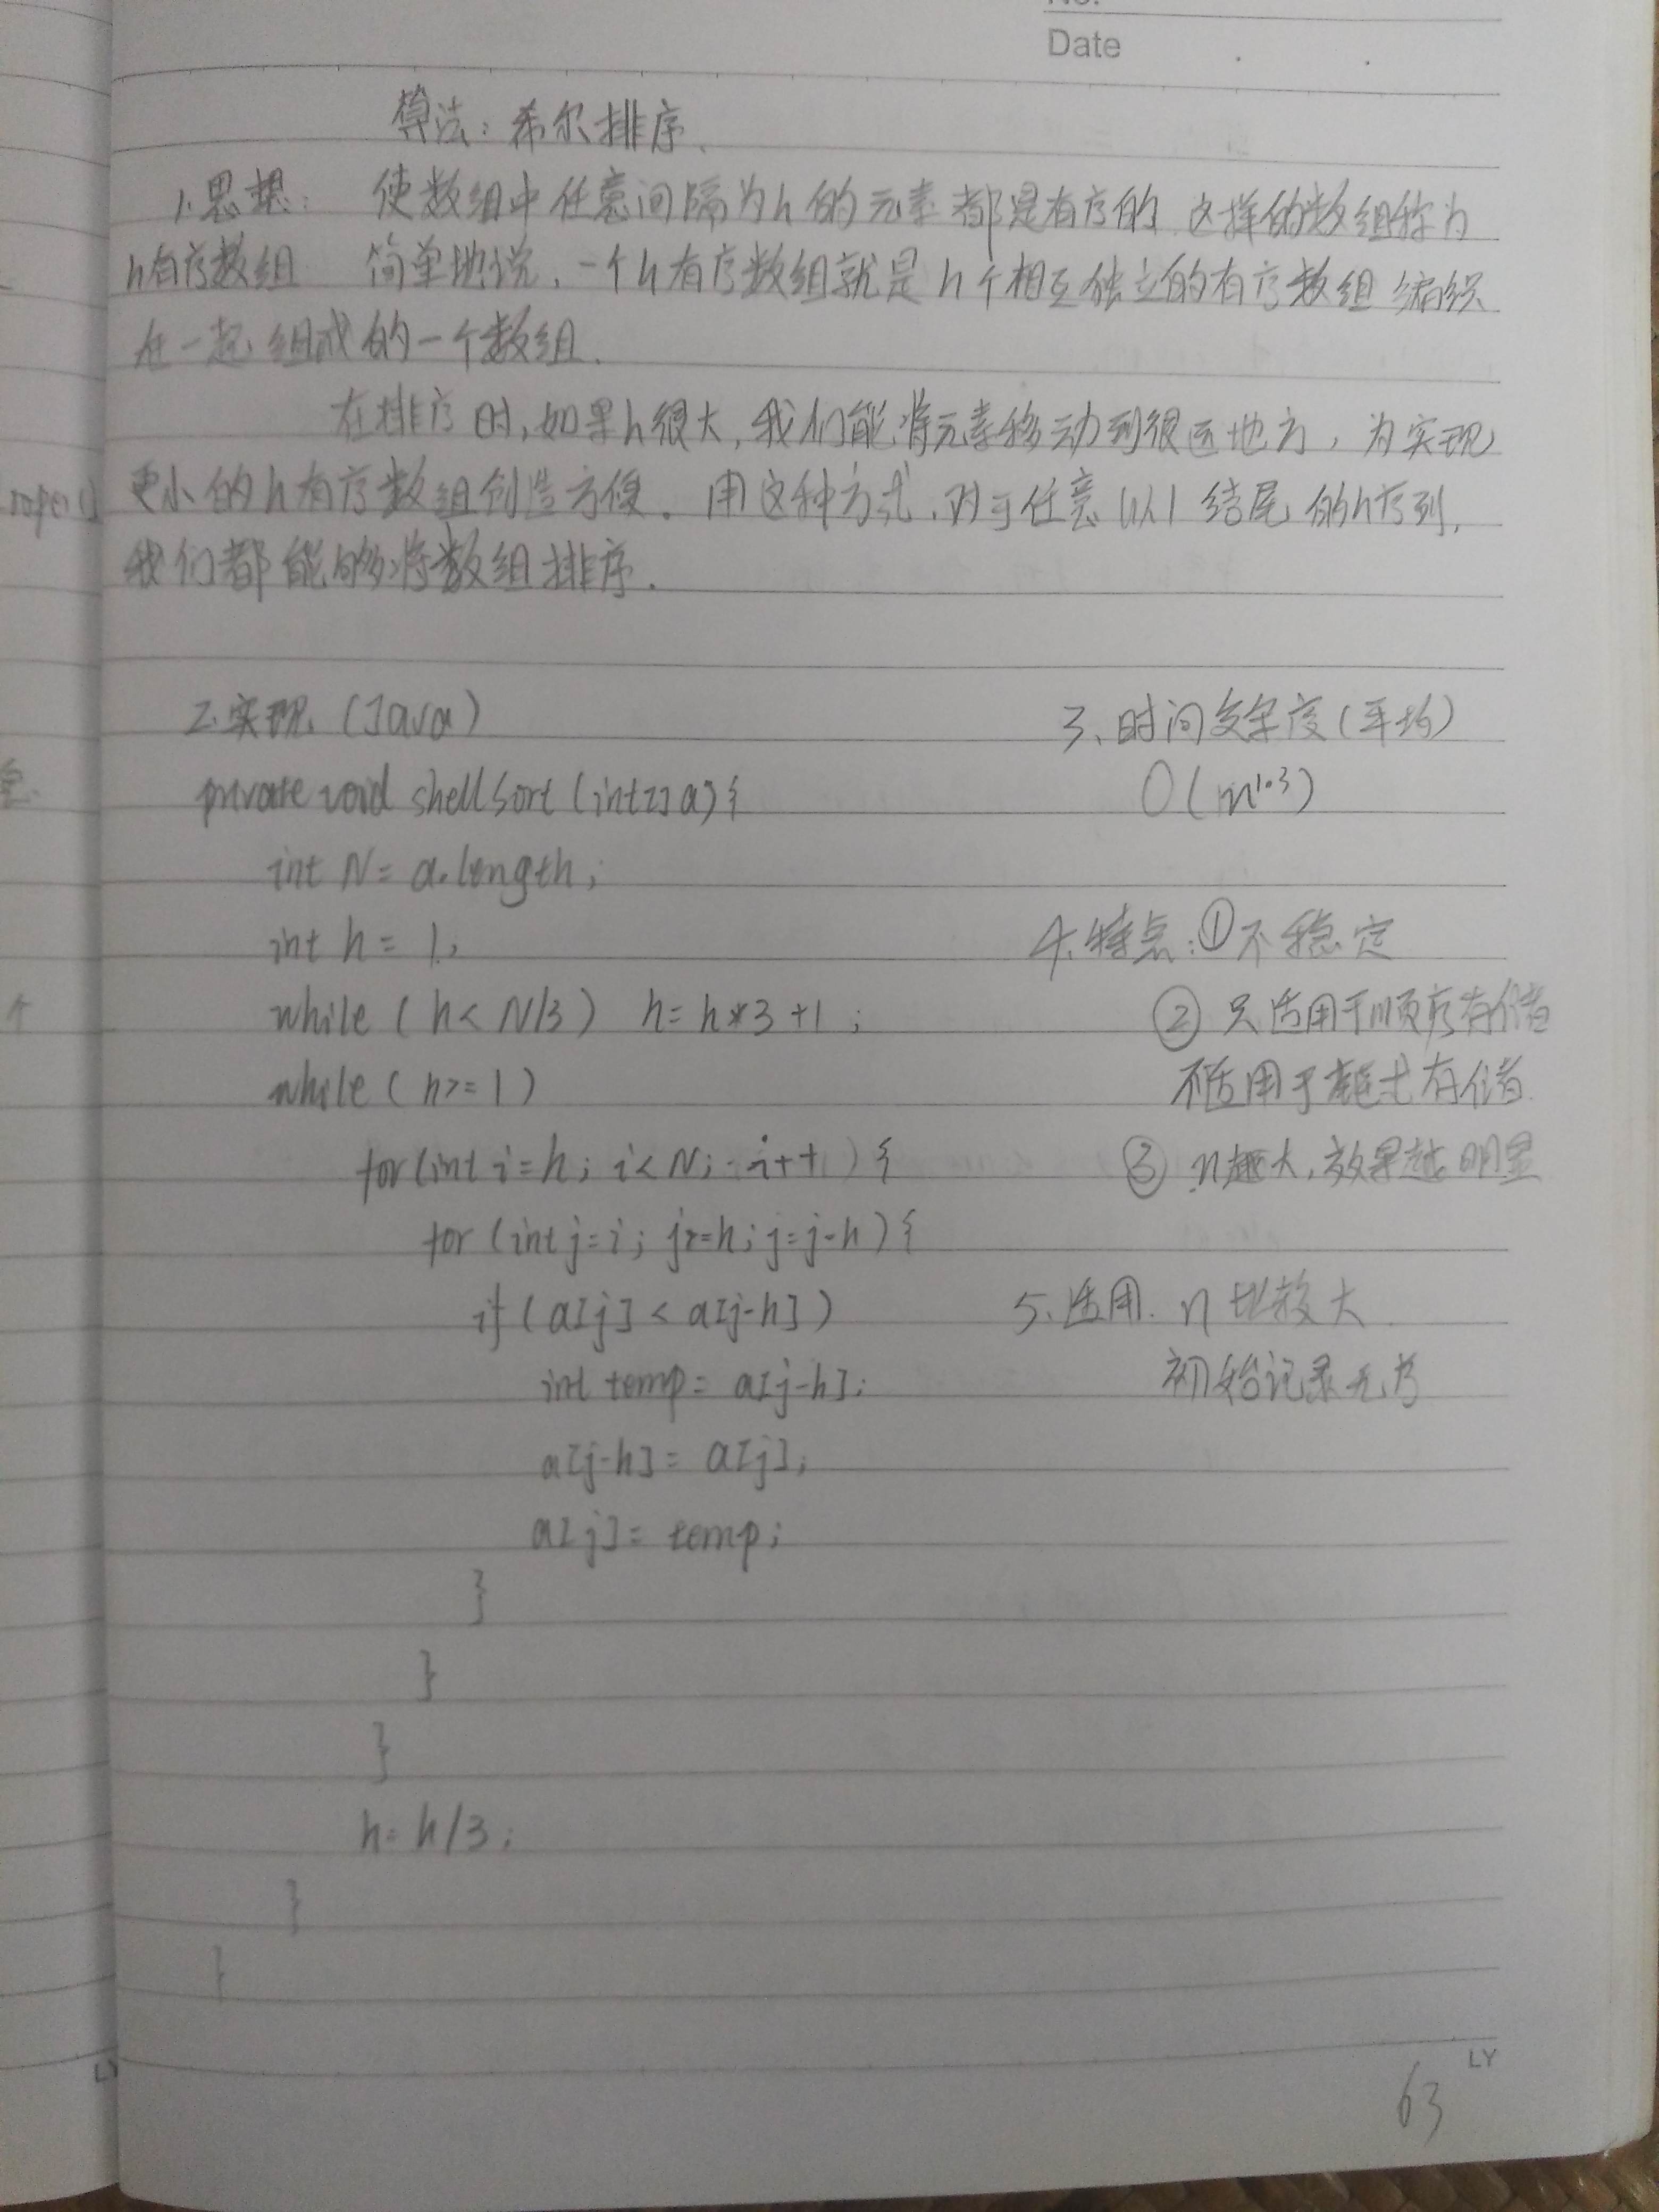 No.
Date
算法:希尔排序.
1.思想: 使数组中任意间隔为h的元素都是有序的 这样的数组称为
h有序数组 简单地说,一个h有序数组就是h个相互独立的有序数组编织
在一起组成的一个数组.
在排序时,如果h很大,我们能将元素移动到很远地方,为实现
更小的h有序数组创造方便。用这种方式,对于任意以1结尾的h序列,
我们都能够将数组排序.
2.实现 (Java)
private void shellSort (int[] a) {
int N = a.length;
int h = 1;
while ( h < N/3 ) h = h*3 +1 ;
while ( h >= 1 )
for (int i = h; i < N; i++ ) {
for (int j = i; j >= h; j = j-h ) {
if ( a[j] < a[j-h] )
int temp = a[j-h];
a[j-h] = a[j];
a[j] = temp;
}
}
}
h = h/3;
}
}
3、时间复杂度(平均)
O(n^1.3)
4.特点:①不稳定
② 只适用于顺序存储
不适用于链式存储
③ n越大,效果越明显
5、适用. n比较大
初始记录无序
LY
63